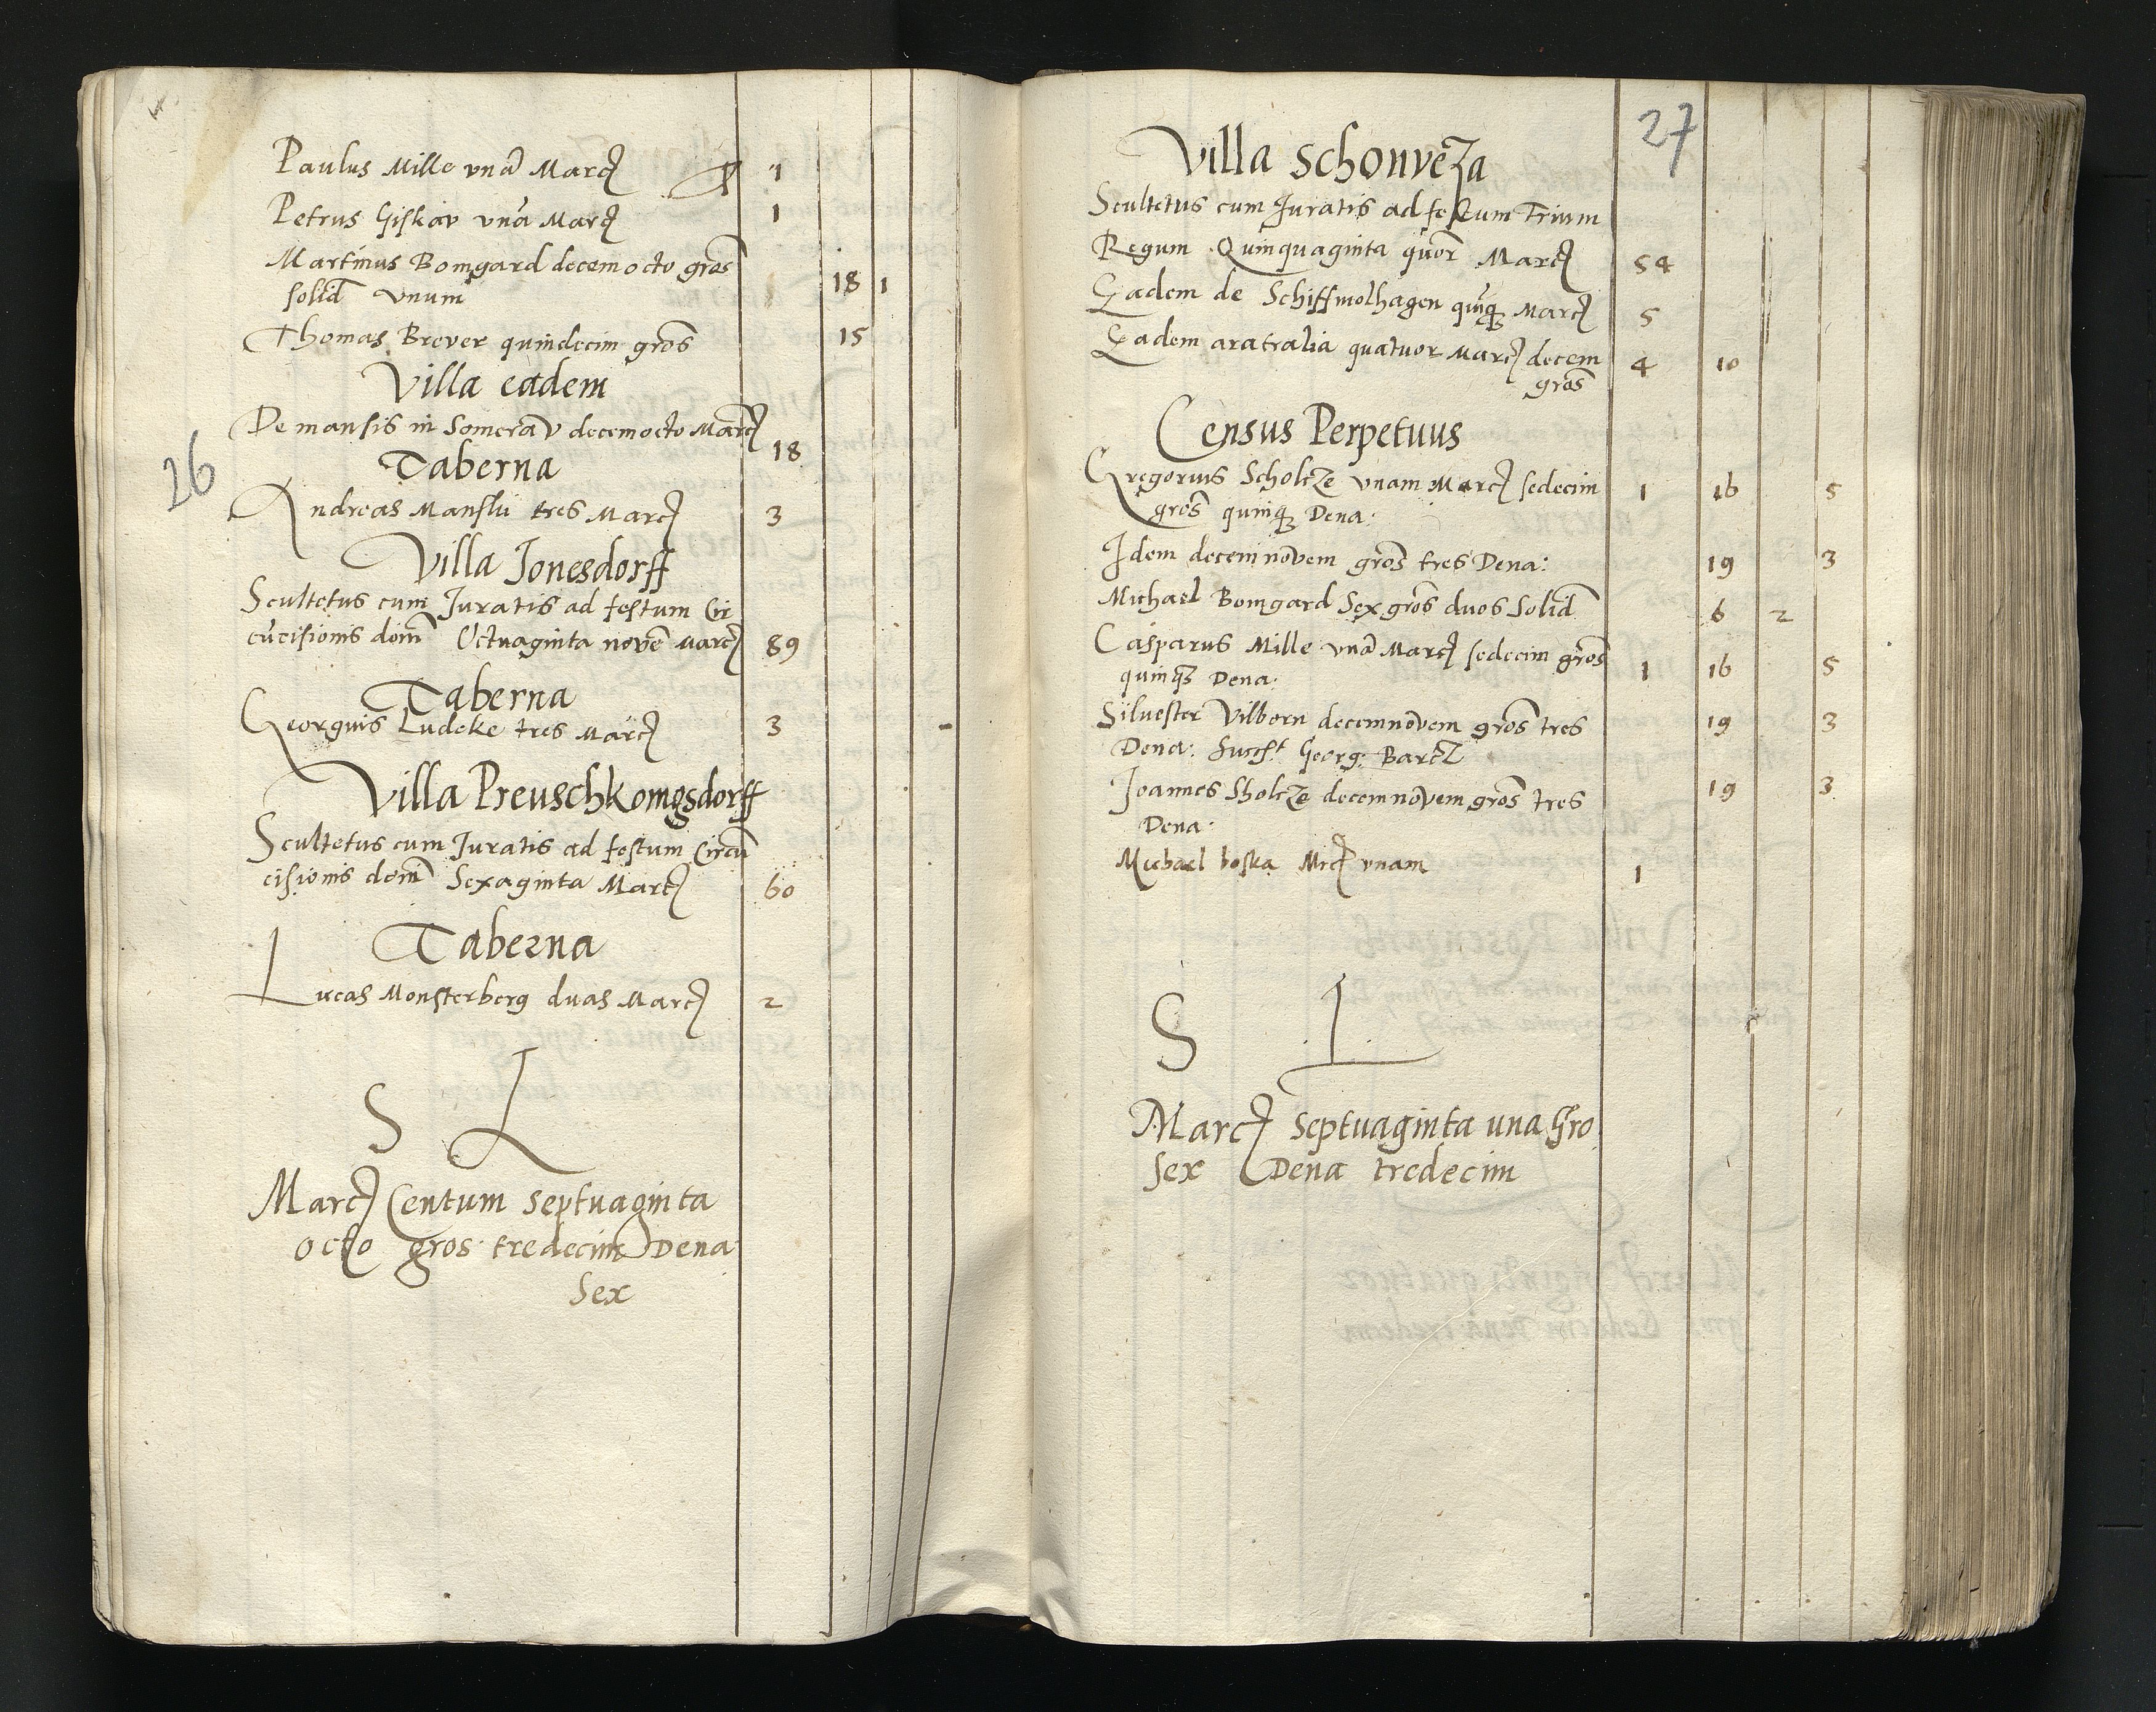 Paulus Mille unā Marc 1
Petrus Giskav unā Marc 1
Martinus Bomgard decem octo gros
solid unum 18 1
Thomas Brever quindecim gros 15
Villa eadem
De mansis in Somerav decem octo Marc 18
26
Taberna
Andreas Manslii tres Marc 3
Villa Jonesdorff
Scultetus cum Juratis ad festum Cir
cūcisionis dom̄ Octuaginta novē Marc 89
Taberna
Georgius Ludeke tres Marc 3
Villa Preuschkonigsdorff
Scultetus cum Juratis ad festum Circū
cisionis dom̄ Sexaginta Marc 60
Taberna
Lucas Monsterberg duas Marc 2
S L
Marc Centum Septuaginta
octo gros tredecim Dena
Sex
27
Villa Schonvēza
Scultetus cum Juratis ad festum Trium
Regum Quinquaginta quor Marc 54
Eadem de Schiffmolhagen quīq Marc 5
Eadem aratralia quatuor Marc decem 4 10
gros
Census Perpetuus
Gregorius Scholcze unam Marc sedecim 1 16 5
gros quinq Dena:
Idem decem novem gros tres Dena: 19 3
Michael Bomgard Sex gros duos Solid 6 2
Casparus Mille unā Marc sedecim gros
quinq Dena: 1 16 5
Silvester Vilborn decem novem gros tres 19 3
Dena: Georg: Barcz
Joannes Sholcze decem novem gros tres 19 3
Dena:
Michael boska Mrc unam 1
S L
Marc Septuaginta una Gro
Sex Dena tredecim